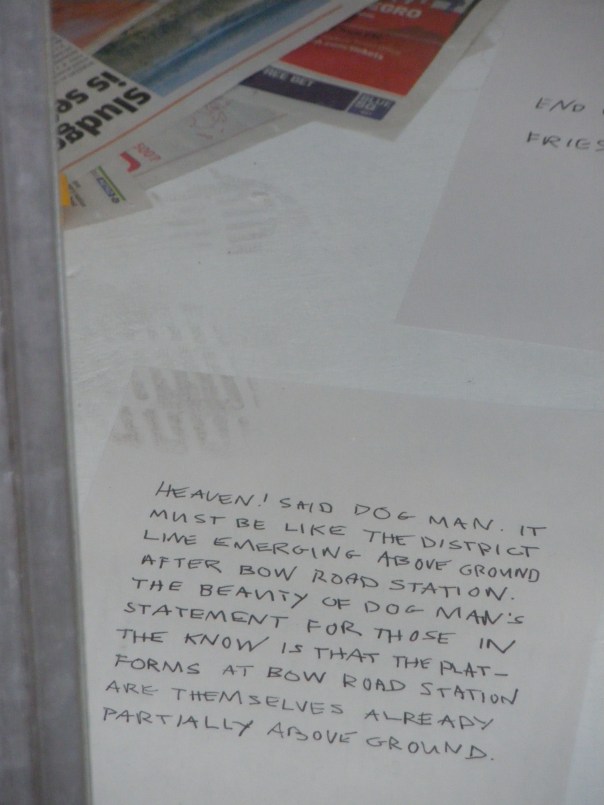 EGRO
is se
sludg
END
FRIES
HEAVEN! SAID DOG MAN. IT
MUST BE LIKE THE DISTRICT
LINE EMERGING ABOVE GROUND
AFTER BOW ROAD STATION.
THE BEAUTY OF DOG MAN'S
STATEMENT FOR THOSE IN
THE KNOW IS THAT THE PLAT-
FORMS AT BOW ROAD STATION
ARE THEMSELVES ALREADY
PARTIALLY ABOVE GROUND.